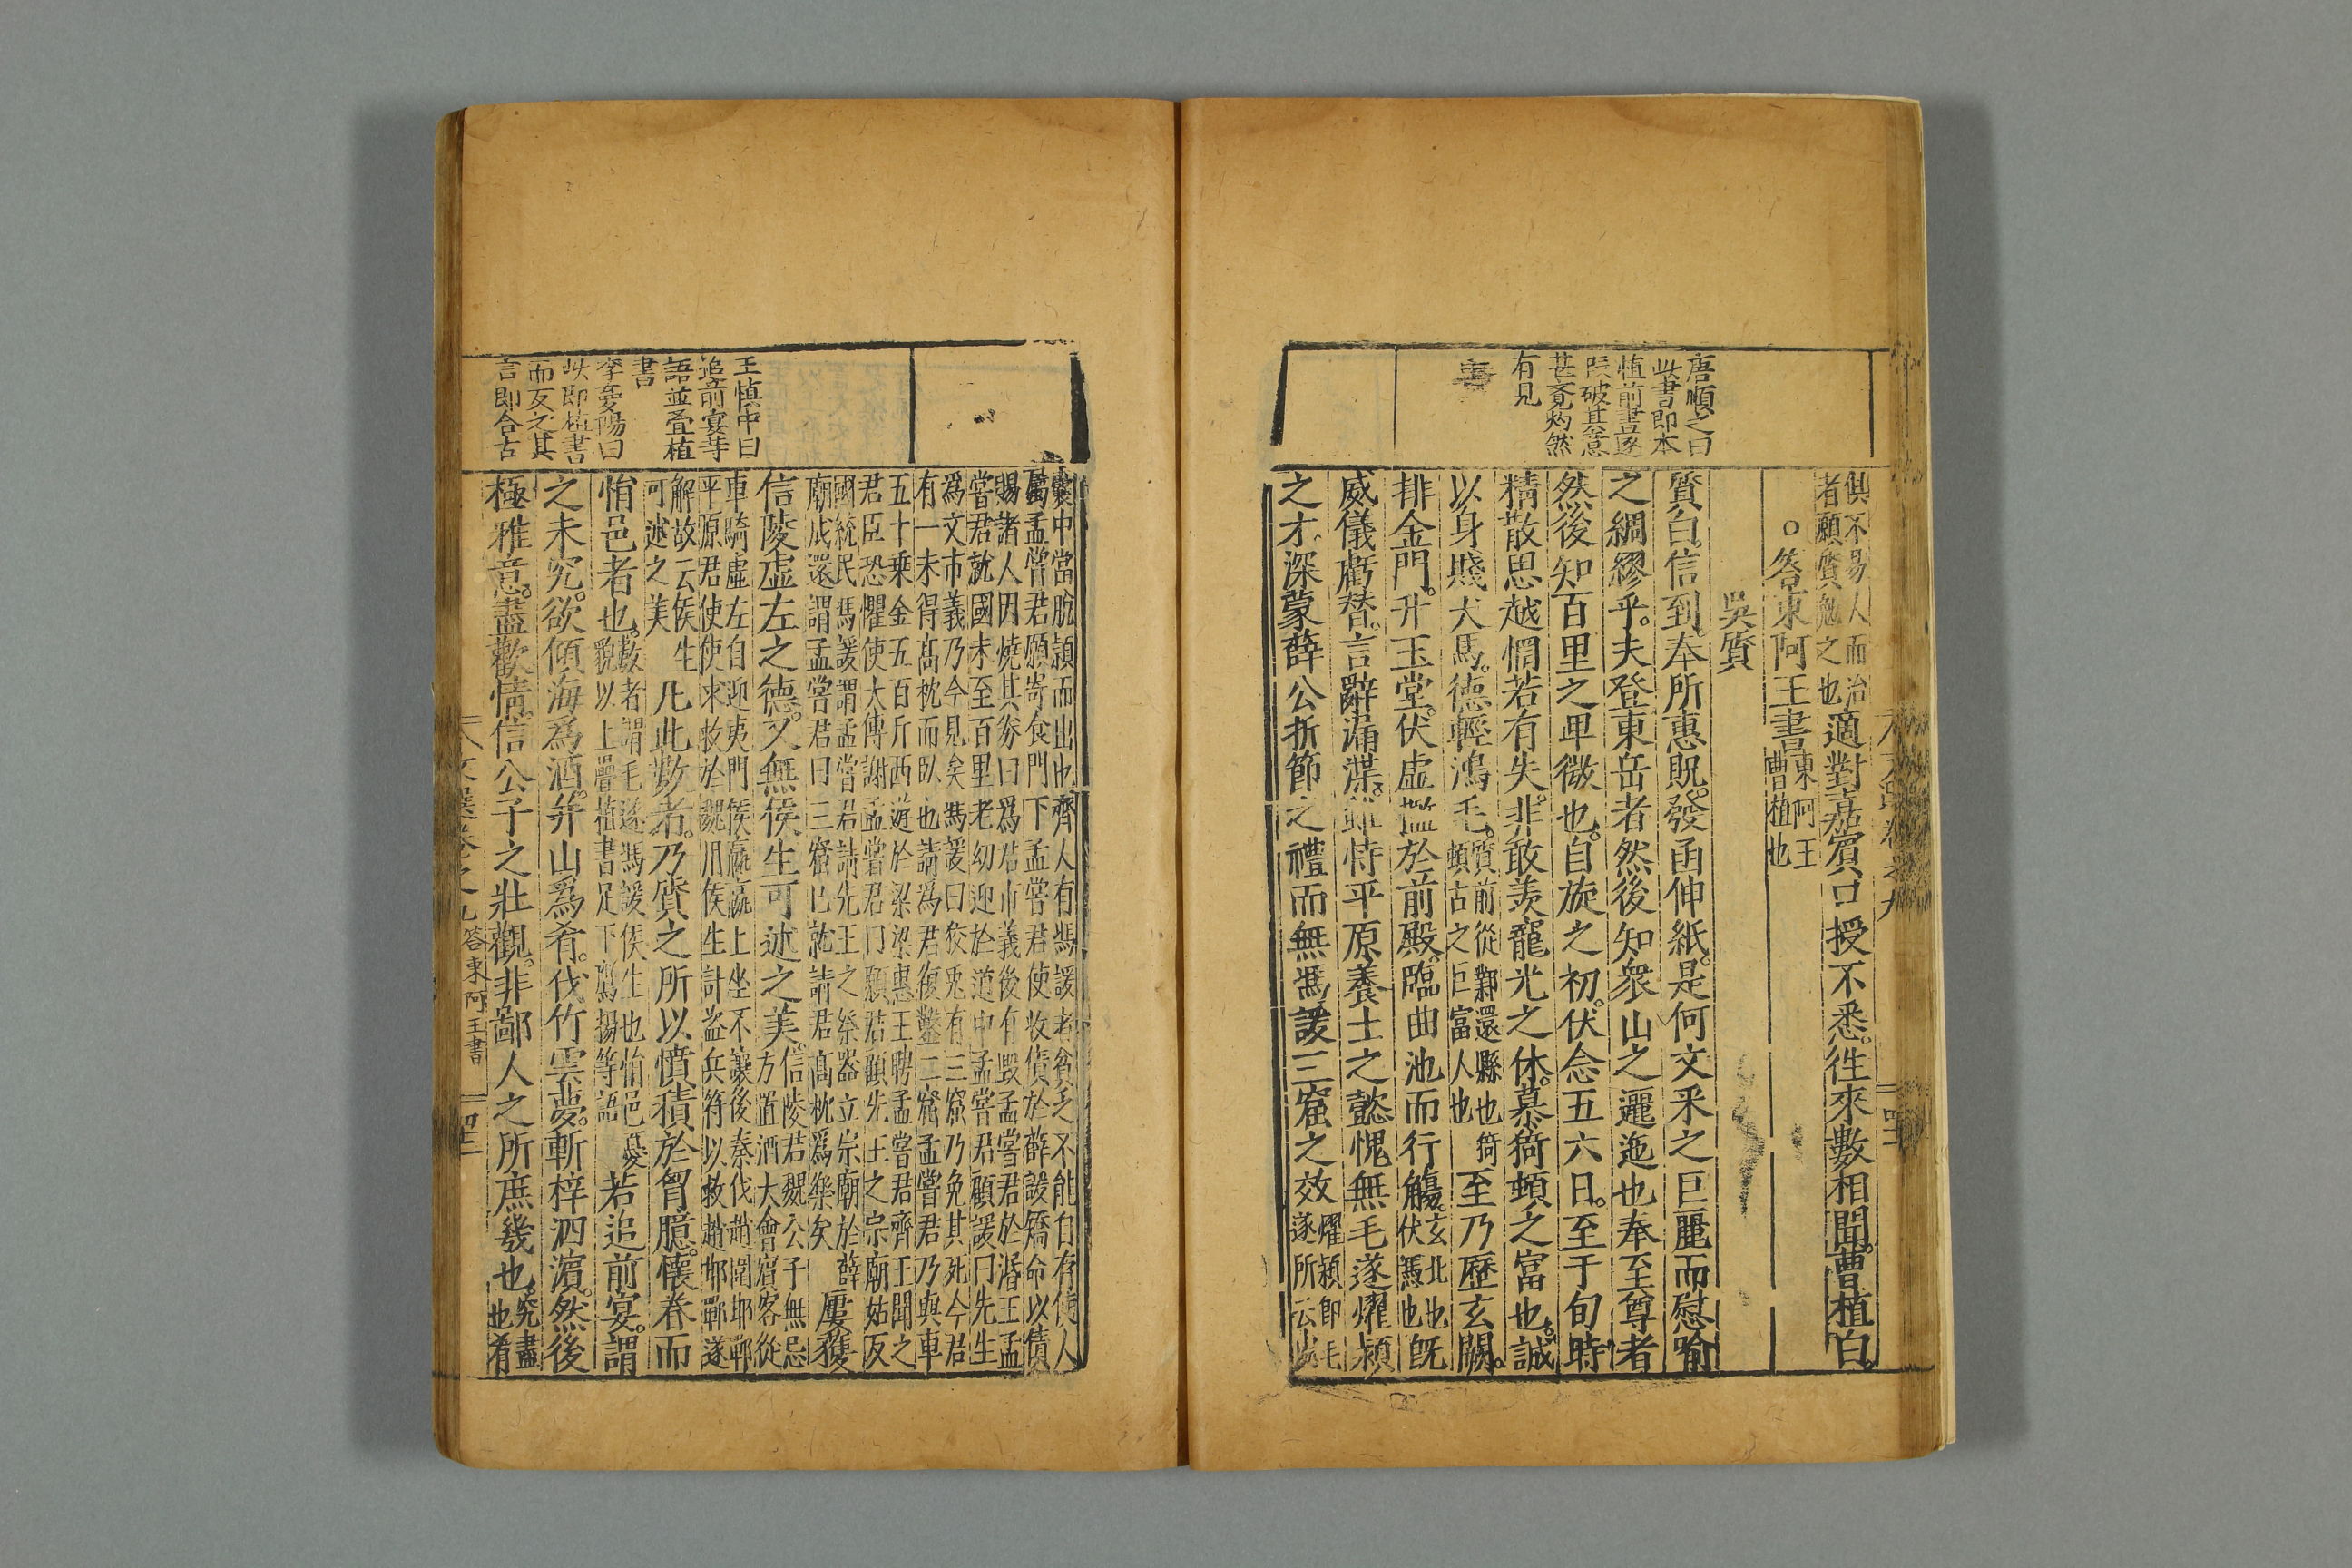 唐順之曰
此書即本
植前書逐
段破其意
甚覺灼然
有見
俱不易人而治
者願質勉之也
適對嘉賓口授不悉往來數相聞曹植白
○答東阿王書
東阿王
曹植也
吳質
質白信到奉所惠貺發函伸紙是何文采之巨麗而慰喻
之綢繆乎夫登東岳者然後知衆山之邐迤也奉至尊者
然後知百里之卑微也自旋之初伏念五六日至于旬時
精散思越惘若有失非敢羨寵光之休慕猗頓之富也誠
以身賤犬馬德輕鴻毛
質前從鄴還縣也猗
頓古之巨富人也
至乃歷玄闕
排金門升玉堂伏虛檻於前殿臨曲池而行觴
玄北也
伏馮也
既
威儀虧替言辭漏渫雖恃平原養士之懿愧無毛遂燿穎
之才深蒙薛公折節之禮而無馮諼三窟之效
燿穎即毛
遂所云
王慎中曰
追前宴等
語並疊植
書
李愛陽曰
此即植書
而反之其
言即合古
囊中當脫穎而出也齊人有馮諼者貧乏不能自存使人
屬孟嘗君願寄食門下孟嘗君使收債於薛諼矯命以債
賜諸人因燒其券曰爲君市義後有毀孟嘗君於湣王孟
嘗君就國未至百里老幼迎於道中孟嘗君顧諼曰先生
爲文市義乃今見矣馮諼曰狡兎有三窟乃免其死今君
有一未得髙枕而臥也請爲君復鑿二窟孟嘗君乃與車
五十乗金五百斤西遊於梁梁惠王聘孟嘗君齊王聞之
君臣恐懼使大傅謝孟嘗君曰願君顧先王之宗廟姑反
國統民馮諼謂孟嘗君請先王之祭器立宗廟於薛
廟成還謂孟嘗君曰三窟已就請君髙枕爲樂矣
屢獲
信陵虛左之德又無侯生可述之美
信陵君魏公子無忌
方置酒大會賓客從
車騎虛左自迎夷門侯嬴嬴上坐不讓後秦伐趙圍邯鄲
平原君使使求救於魏用侯生計盗兵符以救趙邯鄲遂
解故云侯生
可述之美
凡此數者乃質之所以憤積於胷臆懷眷而
悁邑者也
數者謂毛遂馮諼侯生也悁邑憂
貌以上疊植書足下鷹揚等語
若追前宴謂
之未究欲傾海爲酒并山爲肴伐竹雲夢斬梓泗濱然後
極雅意盡歡情信公子之壯觀非鄙人之所庶幾也
究盡
也肴
文選卷之九
答東阿王書